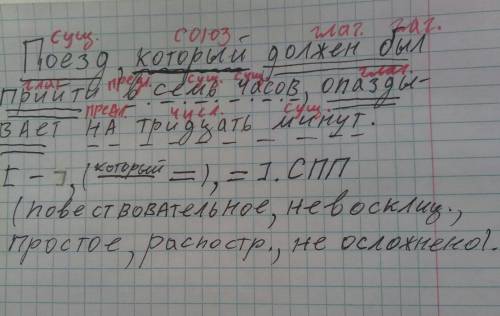 сущ. союз глаг. глаг.
Поезд, который должен был
глаг. предл. сущ. сущ. глаг.
прийти в семь часов, опазды-
предл. числ. сущ.
вает на тридцать минут.
[ - ], (который =), = ]. СПП
(повествовательное, невосклиц.,
простое, распостр., не осложнено).